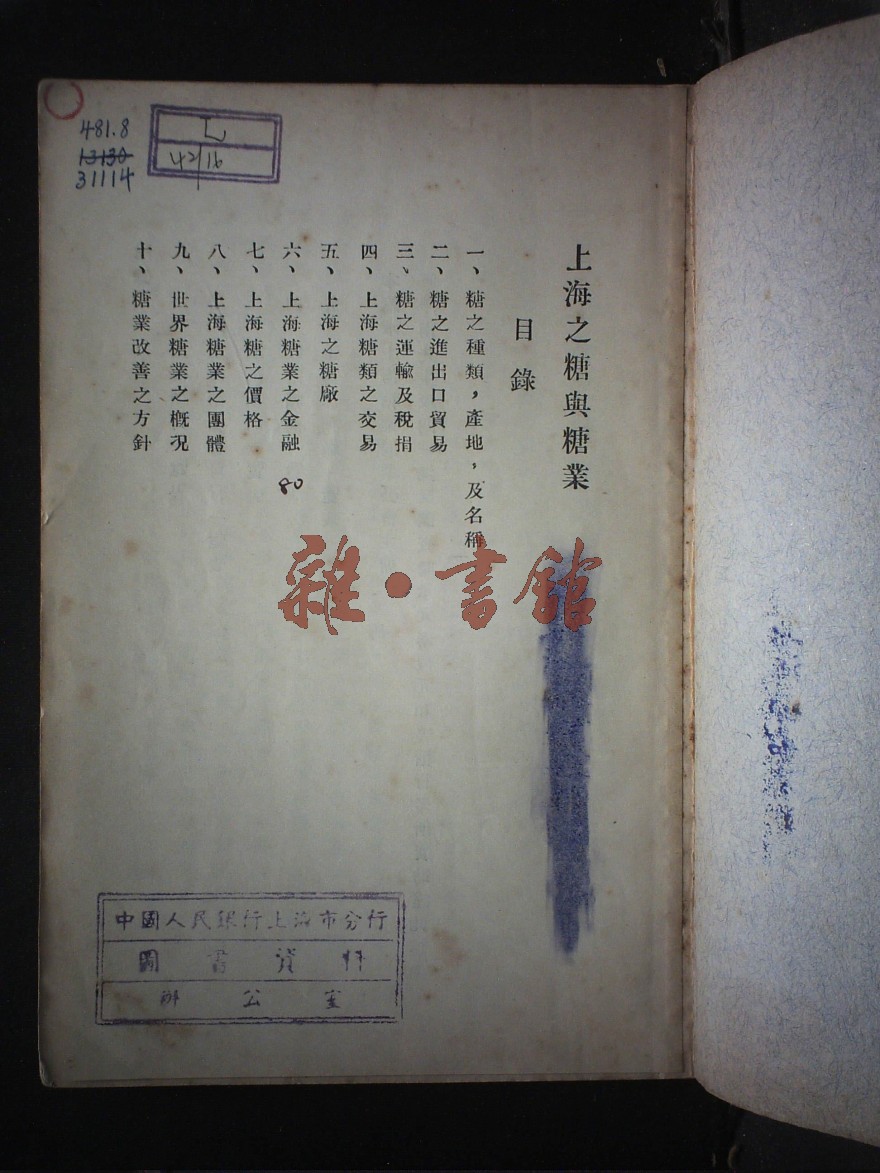 481.8
13130
31114
L
42/16
上海之糖與糖業
目錄
一、糖之種類，產地，及名稱
二、糖之進出口貿易
三、糖之運輸及稅捐
四、上海糖類之交易
五、上海之糖廠
六、上海糖業之金融
80
七、上海糖之價格
八、上海糖業之團體
九、世界糖業之概況
十、糖業改善之方針
雜·書館
中國人民銀行上海市分行
圖書資料
辦公室